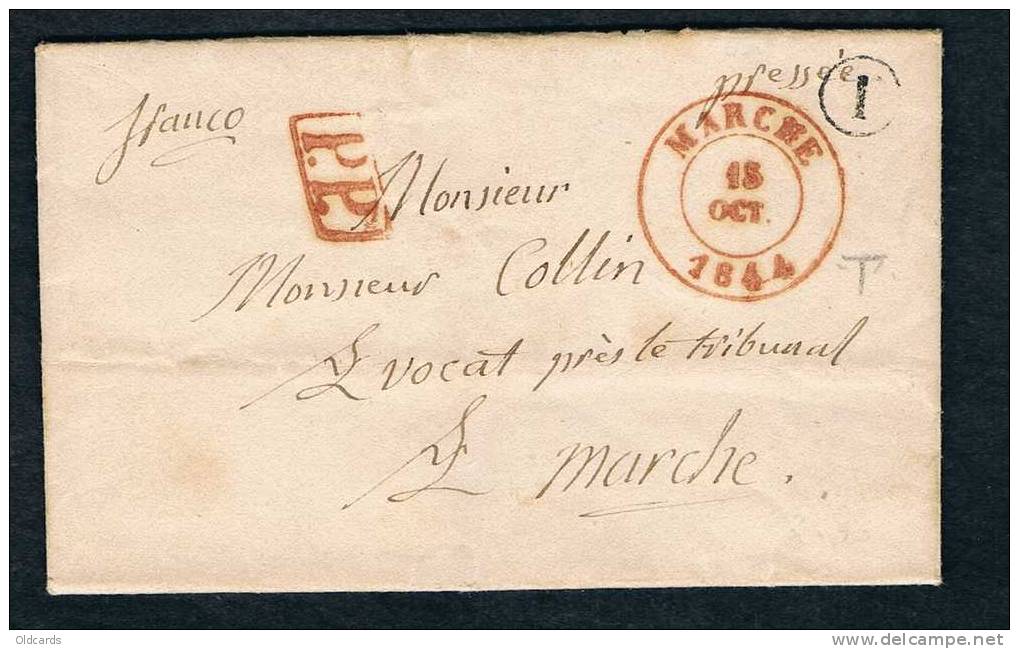 pressée
I
franco
P.P.
MARCHE
15
OCT.
1844
Monsieur
Monsieur Collin
Avocat près le tribunal
A marche.
T
Oldcards
http://www.delcampe.net